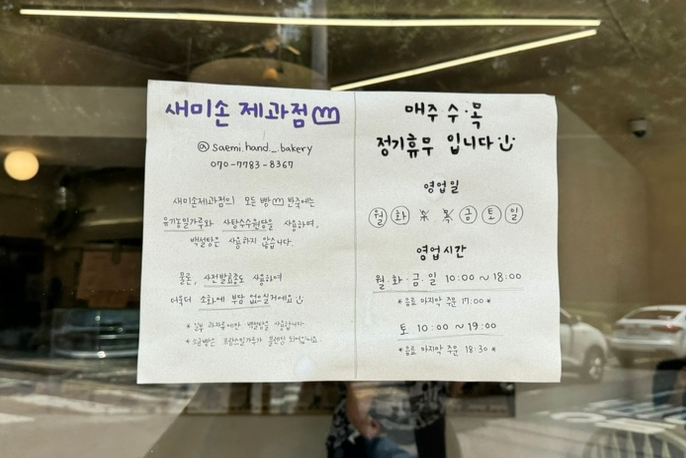 새미손 제과점
@saemi.hand._bakery
070-7783-8367
새미손제과점의 모든 빵 반죽에는
유기농밀가루와 사탕수수원당을 사용하며,
백설탕은 사용하지 않습니다.
물론, 사전발효종도 사용하여
더욱더 소화에 부담 없으실거에요
* 일부 과자류에만 백설탕을 사용합니다
* 소금빵은 프랑스밀가루가 블렌딩
매주 수·목
정기휴무 입니다
영업일
월 화 수 목 금 토 일
영업시간
월·화·금·일 10:00 ~ 18:00
*음료 마지막 주문 17:00*
토 10:00 ~ 19:00
*음료 마지막 주문 18:30*